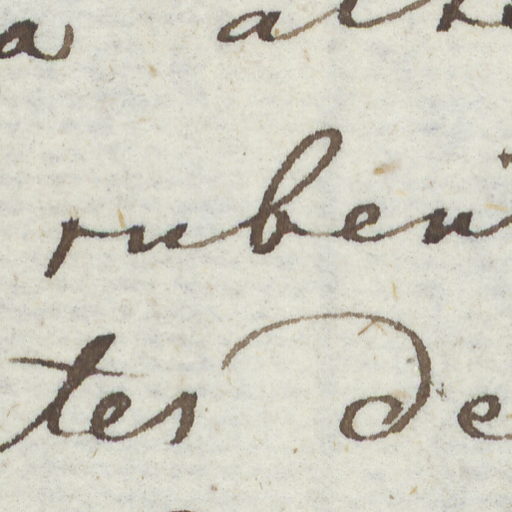 a alt
ruben
tes de